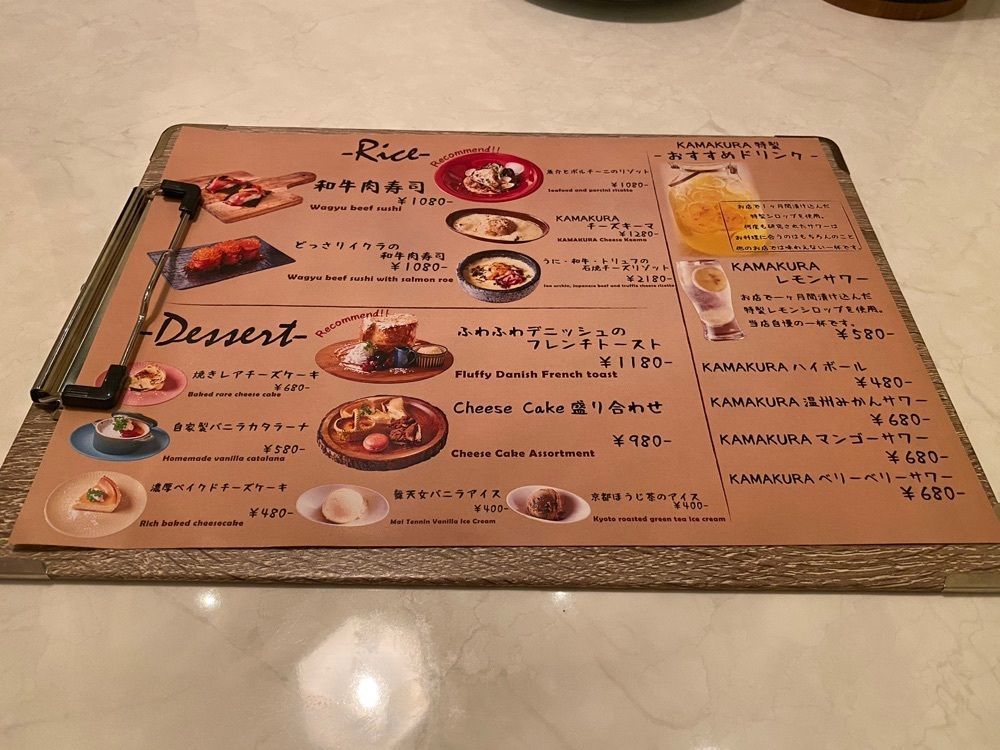 -Rice-
和牛肉寿司
¥1080-
Wagyu beef sushi
どっさりイクラの
和牛肉寿司
¥1080-
Wagyu beef sushi with salmon roe
Recommend!!
魚介とポルチーニのリゾット
¥1080-
Seafood and porcini risotto
KAMAKURA
チーズキーマ
¥1280-
KAMAKURA Cheese Keema
うに・和牛・トリュフの
石焼チーズリゾット
¥2180-
Sea urchin, Japanese beef and truffle cheese risotto
-Dessert-
焼きレアチーズケーキ
¥680-
Baked rare cheese cake
自家製バニラカタラーナ
¥580-
Homemade vanilla catalana
濃厚ベイクドチーズケーキ
¥480-
Rich baked cheesecake
Recommend!!
ふわふわデニッシュの
フレンチトースト
¥1180-
Fluffy Danish French toast
Cheese Cake 盛り合わせ
¥980-
Cheese Cake Assortment
舞天女バニラアイス
¥400-
Mai Tennin Vanilla Ice Cream
京都ほうじ茶のアイス
¥400-
Kyoto roasted green tea ice cream
KAMAKURA 特製
-おすすめドリンク-
お店で1ヶ月間漬け込んだ
特製シロップを使用。
何度も研究されたサワーは
お料理に合うのはもちろんのこと
他のお店では味わえない一杯です。
KAMAKURA
レモンサワー
お店で一ヶ月間漬け込んだ
特製レモンシロップを使用。
当店自慢の一杯です。
¥580-
KAMAKURA ハイボール
¥480-
KAMAKURA 温州みかんサワー
¥680-
KAMAKURA マンゴーサワー
¥680-
KAMAKURA ベリーベリーサワー
¥680-